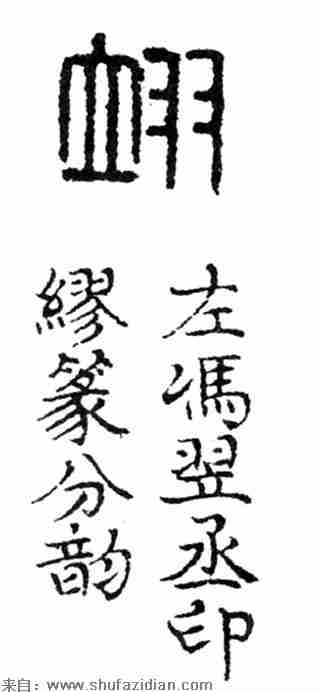 翊
左馮翌丞印
繆篆分韵
来自：www.shufazidian.com